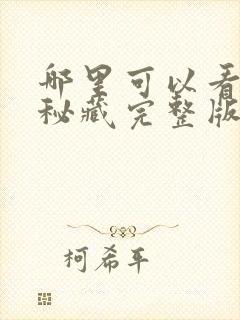 哪里可以看
秘藏完整版
柯希平